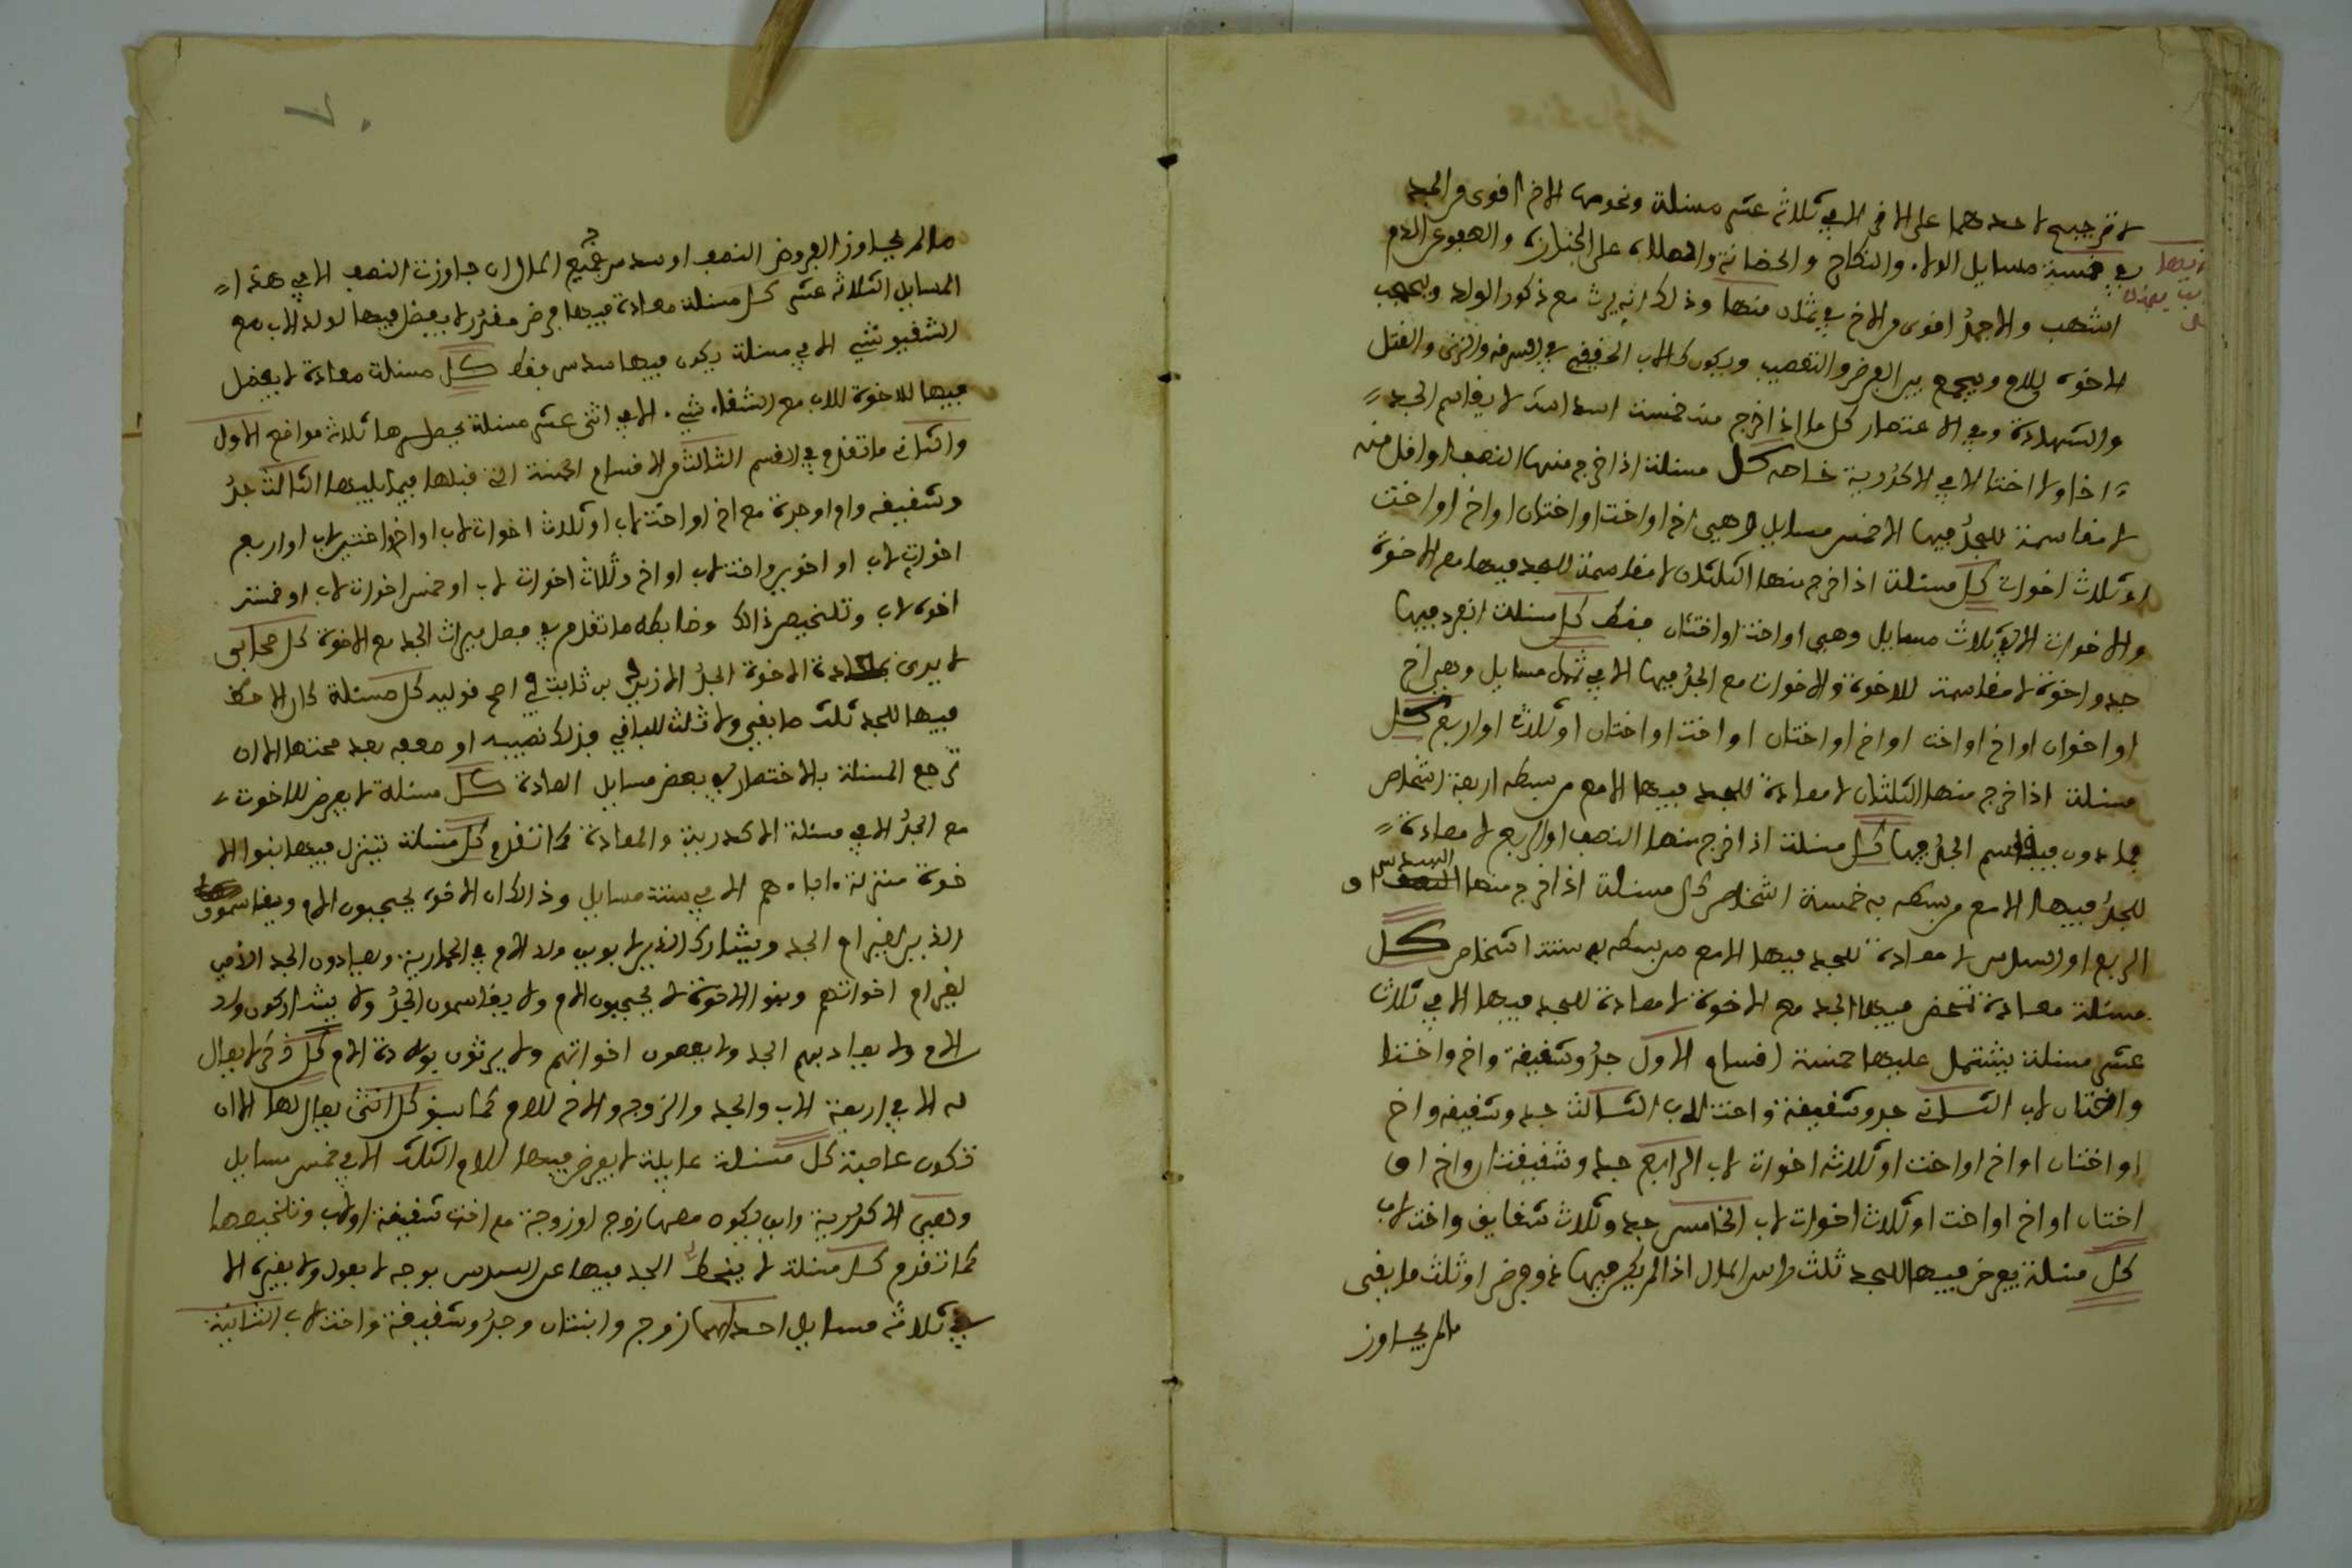 لا ترجيح لاحدهما على الاخر الا في ثلاثة عشر مسئلة ونحوها الاخ اقوى من الجد
في خمسة مسايل الولاء والنكاح والحضانة والصلاة على الجنازة والعفو عن الدم
اشهب والجد اقوى من الاخ في ثمان منها وذلك انه يرث مع ذكور الولد ويحجب
الاخوة للام ويجمع بين الفرض والتعصيب ويكون كالاب الحقيقي في السرقة والزنى والقتل
والشهادة وفي الاعتصار كل ما اذا خرج منه خمسة اسداس لا يقاسم الجد
اخا ولا اختا الا في الاكدرية خاصة كل مسئلة اذا خرج منها النصف او اقل منه
لا مقاسمة للجد فيها الا خمس مسايل وهي اخ او اخت او اختان او اخ او اخت
او ثلاث اخوات كل مسئلة اذا خرج منها الثلثان لا مقاسمة للجد فيها مع الاخوة
والاخوات الا في ثلاث مسايل وهي او اخت او اختان فقط كل مسئلة انفرد فيها
جد واخوة لا مقاسمة للاخوة والاخوات مع الجد فيها الا في ثمان مسايل وهي اخ
او اخوان او اخ او اخت او اخ او اختان او اخت او اختان او ثلاث او اربع كل
مسئلة اذا خرج منها الثلثان لا معادة للجد فيها الا مع من بسطه اربعة اشخاص
فما دون فيقاسم الجد فيها كل مسئلة اذا خرج منها النصف او الربع لا معادة
للجد فيها الا مع من بسطه به خمسة اشخاص كل مسئلة اذا خرج منها السدس او
الربع او السدس لا معادة للجد فيها الا مع من بسطه به ستة اشخاص كل
مسئلة معادة تمحض فيها الجد مع الاخوة لا معادة للجد فيها الا في ثلاث
عشر مسئلة يشتمل عليها خمسة اقسام الاول جد وشقيقة واخ واختا
واختان لاب الثاني جد وشقيقة واخت لاب الثالث جد وشقيقة واخ
او اختان او اخ او اخت او ثلاث اخوات لاب الرابع جد وشقيقتان واخ او
اختان او اخ او اخت او ثلاث اخوات لاب الخامس جد وثلاث شقايق واخت لاب
كل مسئلة يعرض فيها للجد ثلث راس المال اذا لم يكن فيها ذو فرض او ثلث ما بقى
مالم يجاوز
مالم يجاوز الفروض النصف او سدس جميع المال ان جاوزت النصف الا في هذا
المسايل الثلاثة عشر كل مسئلة معادة فيها فرض مقدر لا يفضل فيها لولد الاب مع
الشقيق شيء الا في مسئلة يكون فيها سدس فقط كل مسئلة معادة لا يفضل
فيها للاخوة للاب مع الشقاء شيء الا في اثنى عشر مسئلة يحصرها ثلاث مواضع الاول
والثاني ما تقدم في القسم الثالث من الاقسام الخمسة التي قبلها فيما يليها الثالث جد
وشقيقه وام او جدة مع اخ او اخت لاب او ثلاث اخوات لاب او اخ واختين لاب او اربع
اخوات لاب او اخوين واخت لاب او اخ وثلاث اخوات لاب او خمس اخوات لاب او خمسة
اخوة لاب وتلخيص ذلك وضابطه ما تقدم في فصل ميراث الجد مع الاخوة كل صحابي
لا يرى بمعادة الاخوة الجد الا زيد بن ثابت في اصح قوليه كل مسئلة كان الاحظ
فيها للجد ثلث ما بقي ولا ثلث للباقي فنزل نصيبه او ضعفه بعد صحتها الا ان
ترجع المسئلة بالاختصار في بعض مسايل العادة كل مسئلة لا يعرض للاخوت
مع الجد الا في مسئلة الاكدرية والمعادة كما تقدم كل مسئلة تنزل فيها بنوا الا
خوة منزلة اباهم الا في ستة مسايل وذلك ان الاخوة يحجبون الام ويقاسمون
الذين لغير ام الجد ويشارك الذين لابوين ولد الام في الحمارية ويعادون الجد الذين
لغير ام اخواتهم وبنو الاخوة لا يحجبون الام ولا يقاسمون الجد ولا يشاركون ولد
الام ولا يعاد بهم الجد ولا يعصبون اخواتهم ولا يرثون بولادة الام كل ذكر لا يعال
له الا في اربعة الاب والجد والزوج والاخ للام كما سبق كل انثى يعال لها الا ان
تكون عاصبة كل مسئلة عايلة لا يعرض فيها للام الثلث الا في خمس مسايل
وهي الاكدرية وان يكون معها زوج او زوجة مع اخت شقيقة او لاب وتلخيصها
كما تقدم كل مسئلة لا ينحط الجد فيها عن السدس بوجه لا يعول ولا بغيره الا
في ثلاثة مسايل احداهما زوج وابنتان وجد وشقيقة واخت لاب الثانية